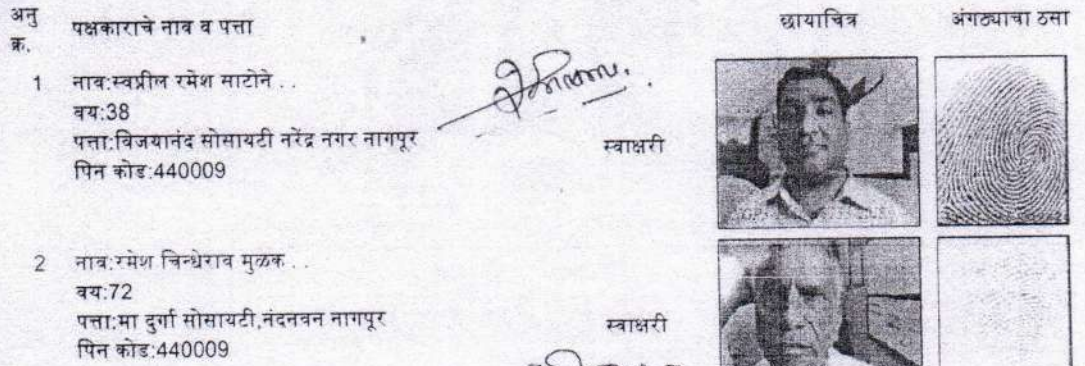 अनु क्र. पक्षकाराचे नाव व पत्ता छायाचित्र अंगठ्याचा ठसा
1 नाव:स्वप्नील रमेश साटोने . .
वय:38
पत्ता:विजयानंद सोसायटी नरेंद्र नगर नागपूर
पिन कोड:440009
स्वाक्षरी
2 नाव:रमेश चिन्धेराव मुळक . .
वय:72
पत्ता:मा दुर्गा सोसायटी,नंदनवन नागपूर
पिन कोड:440009
स्वाक्षरी